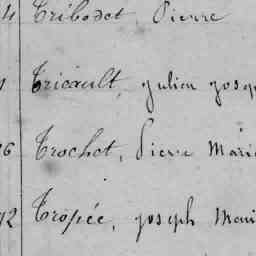 4 Tribodet, Pierre
Tricault, Julien Josq
6 Trochet, Pierre Marie
92 Tropée, Joseph Mari